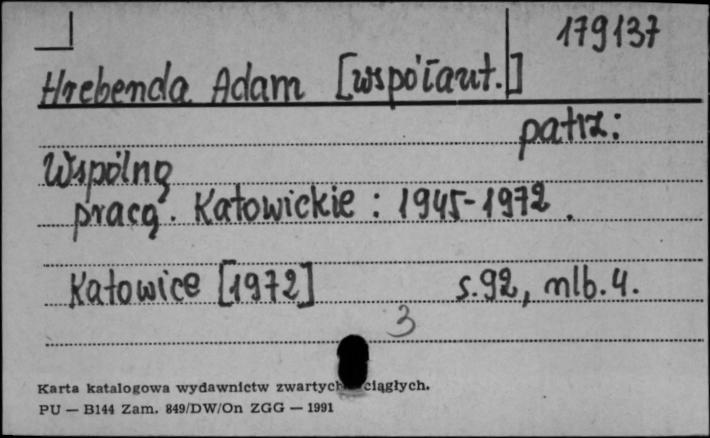 179137
Hrebenda Adam [współaut.]
patrz:
Wspólną
pracą. Katowickie : 1945-1972.
Katowice [1972] s.92, nlb.4.
3
Karta katalogowa wydawnictw zwartych ciągłych.
PU — B144 Zam. 849/DW/On ZGG — 1991